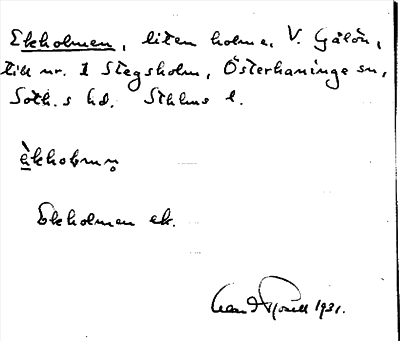 Ekholmen, liten holme, V. Gålön,
till nr. 1 Stegsholm, Österhaninge sn,
Soth.s hd. Sthlms l.
èkhoḷmn̥
Ekholmen ek.
1931.